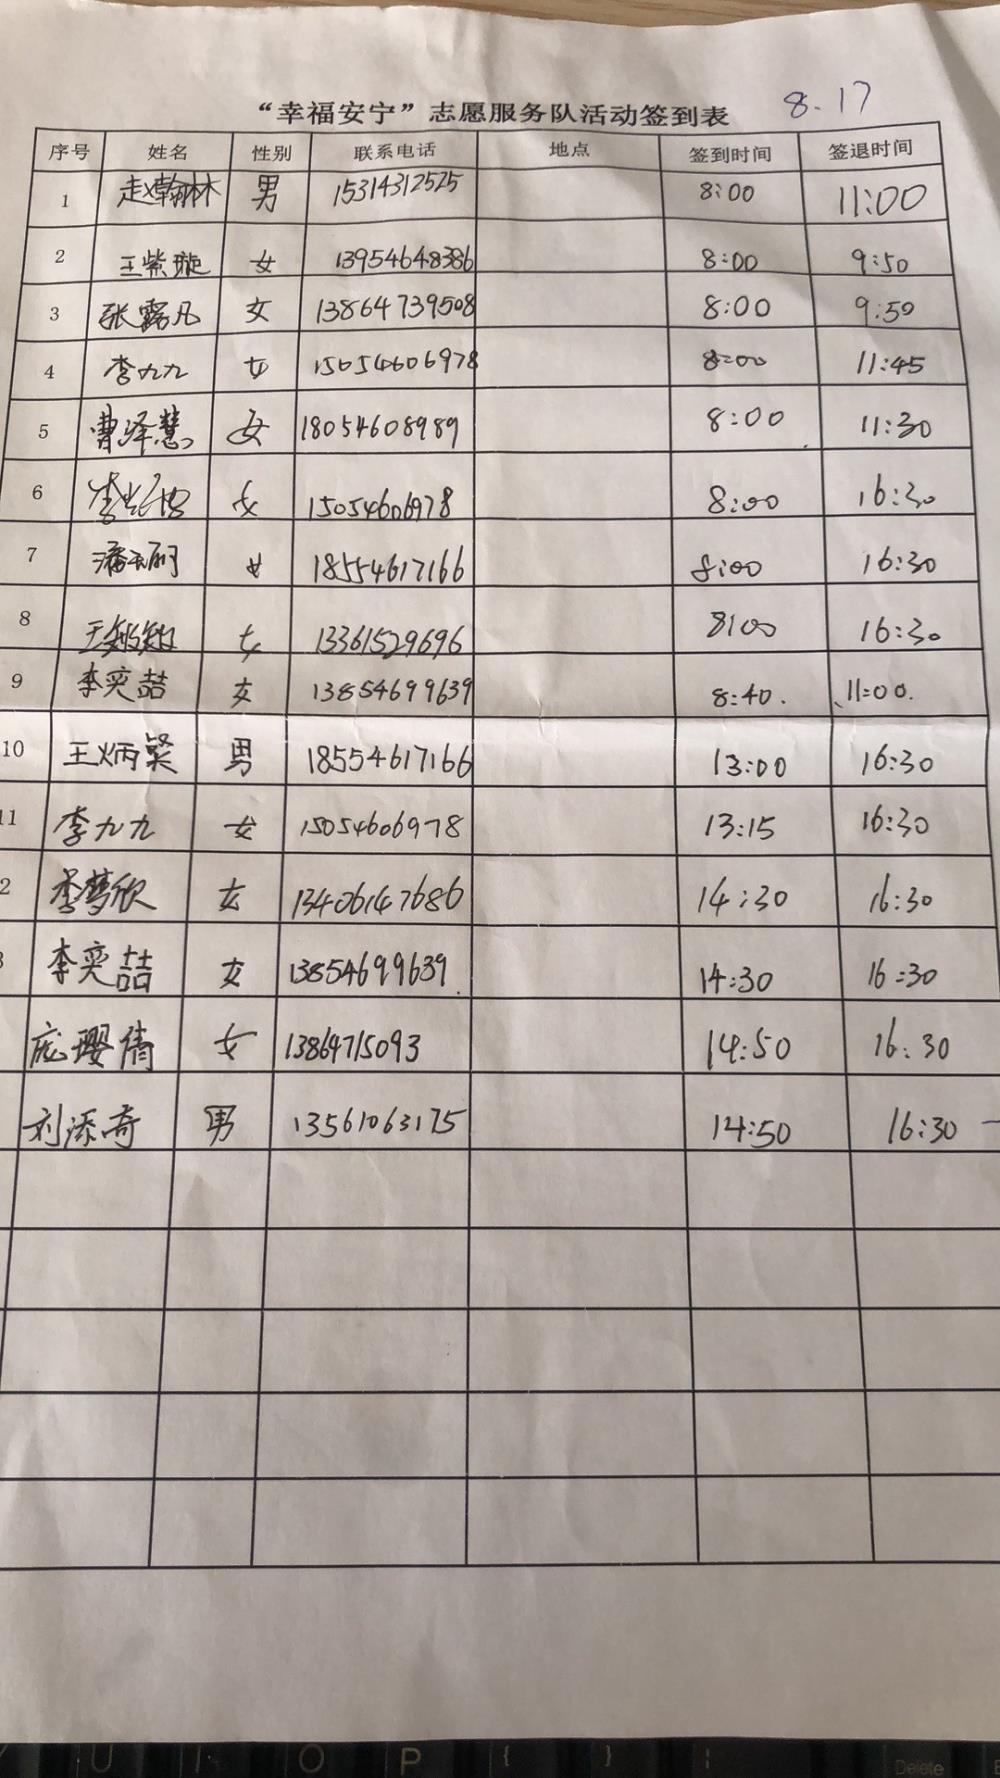 “幸福安宁”志愿服务队活动签到表 8.17
序号 姓名 性别 联系电话 地点 签到时间 签退时间
1 赵翰林 男 15314312525 8:00 11:00
2 王紫璇 女 13954648386 8:00 9:50
3 张露凡 女 13864739508 8:00 9:50
4 李九九 女 15054606978 8:00 11:45
5 曹泽慧 女 18054608989 8:00 11:30
6 女 15054606978 8:00 16:30
7 女 18554617166 8:00 16:30
8 王敏敏 女 13361529696 8:00 16:30
9 李奕喆 女 13854699639 8:40. 11:00.
10 王炳 男 18554617166 13:00 16:30
11 李九九 女 15054606978 13:15 16:30
2 李梦欣 女 13406147686 14:30 16:30
3 李奕喆 女 13854699639. 14:30 16:30
庞璎倩 女 13864715093 14:50 16:30
刘添奇 男 13561063175 14:50 16:30
U I O P { } Delete